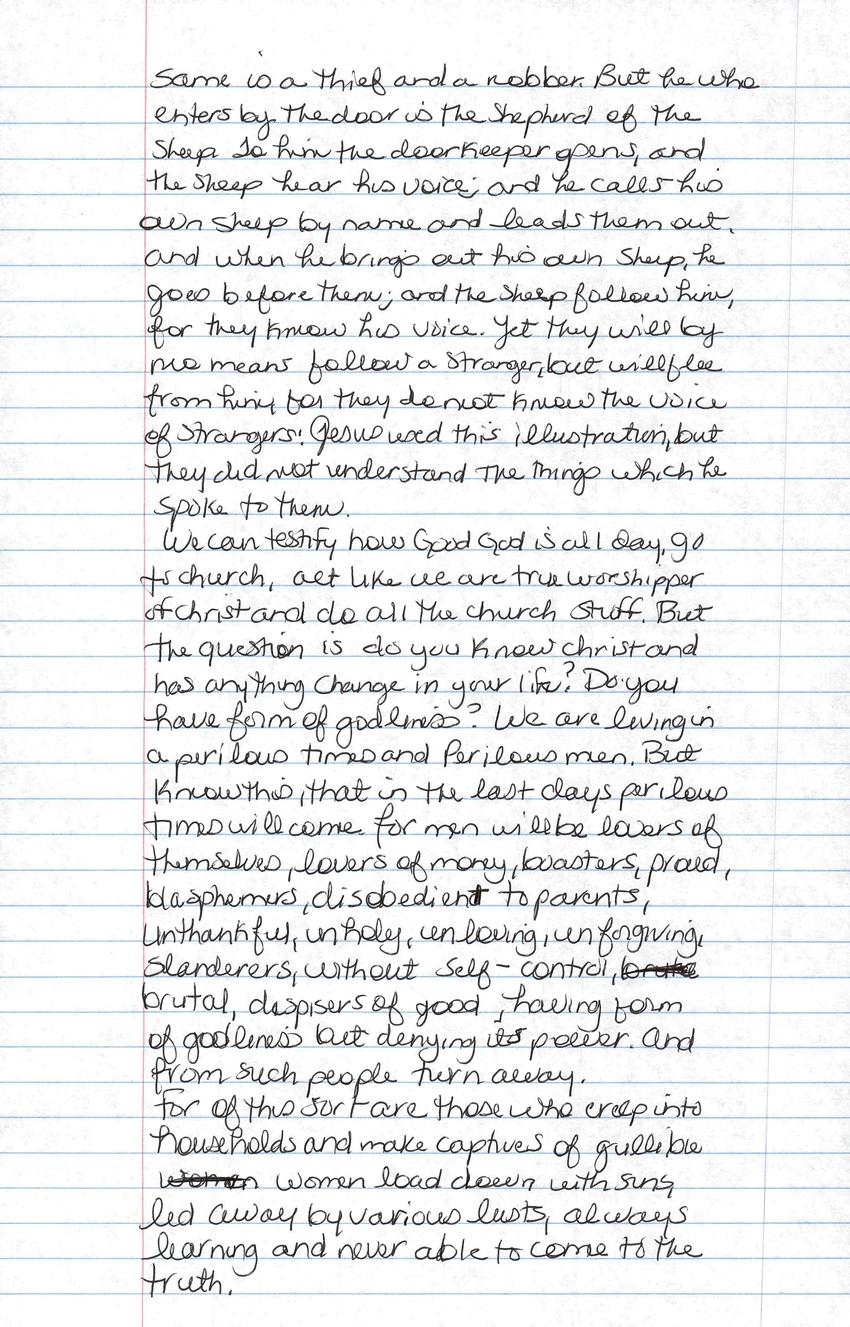 Same is a thief and a robber. But he who
enters by the door is the Shepherd of the
Sheep. To him the doorkeeper opens, and
the sheep hear his voice; and he calls his
own sheep by name and leads them out.
and when he brings out his own Sheep, he
goes before them; and the sheep follow him,
for they know his voice. Yet they will by
no means follow a stranger, but will flee
from him, for they do not know the voice
of strangers! Jesus used this illustration, but
they did not understand the things which he
spoke to them.
We can testify how Good God is all day, go
to church, act like we are true worshipper
of christ and do all the church stuff. But
the question is do you know christ and
has anything change in your life? Do you
have form of godliness? We are living in
a perilous times and Perilous men. But
know this, that in the last days perilous
times will come. for men will be lovers of
themselves, lovers of money, boasters, proud,
blasphemers, disobedient to parents,
Unthankful, unholy, unloving, unforgiving,
Slanderers, without self-control,
brutal, despisers of good, having form
of godliness but denying its power. And
from such people turn away.
For of this sort are those who creep into
households and make captives of gullible
women load down with sins,
led away by various lusts, always
learning and never able to come to the
truth.